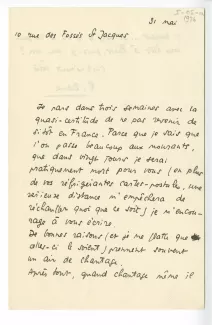 31 mai
10 rue des Fossés St Jacques
Je pars dans trois semaines avec la
quasi-certitude de ne pas revenir de
sitôt en France. Parce que je sais que
l'on passe beaucoup aux mourants,
que dans vingt jours je serai
pratiquement mort pour vous (en plus
de vos réfrigérantes cartes-postales, une
distance m'empêchera de
réchauffer quoi que ce soit) je m'encou-
rage à vous écrire.
De bonnes raisons (et je me flatte que
celles-ci le soient) prennent souvent
un air de chantage.
Après tout, quand chantage même il